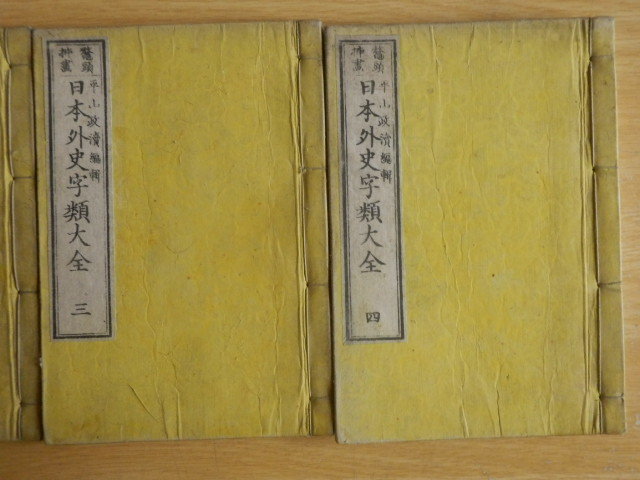 鼇頭
挿畫
平山政瀆編輯
日本外史字類大全
三
鼇頭
挿畫
平山政瀆編輯
日本外史字類大全
四